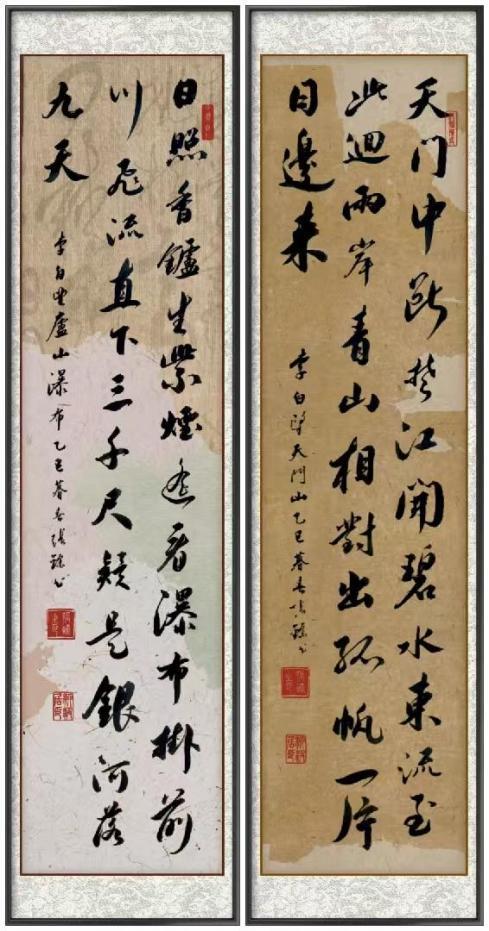 天门中斷楚江開碧水東流至
此迴兩岸青山相對出孤帆一片
日邊来
李白望天门山乙巳暮春
日照香鑪生紫煙遥看瀑布掛前
川飛流直下三千尺疑是銀河落
九天
李白望廬山瀑布乙巳暮春